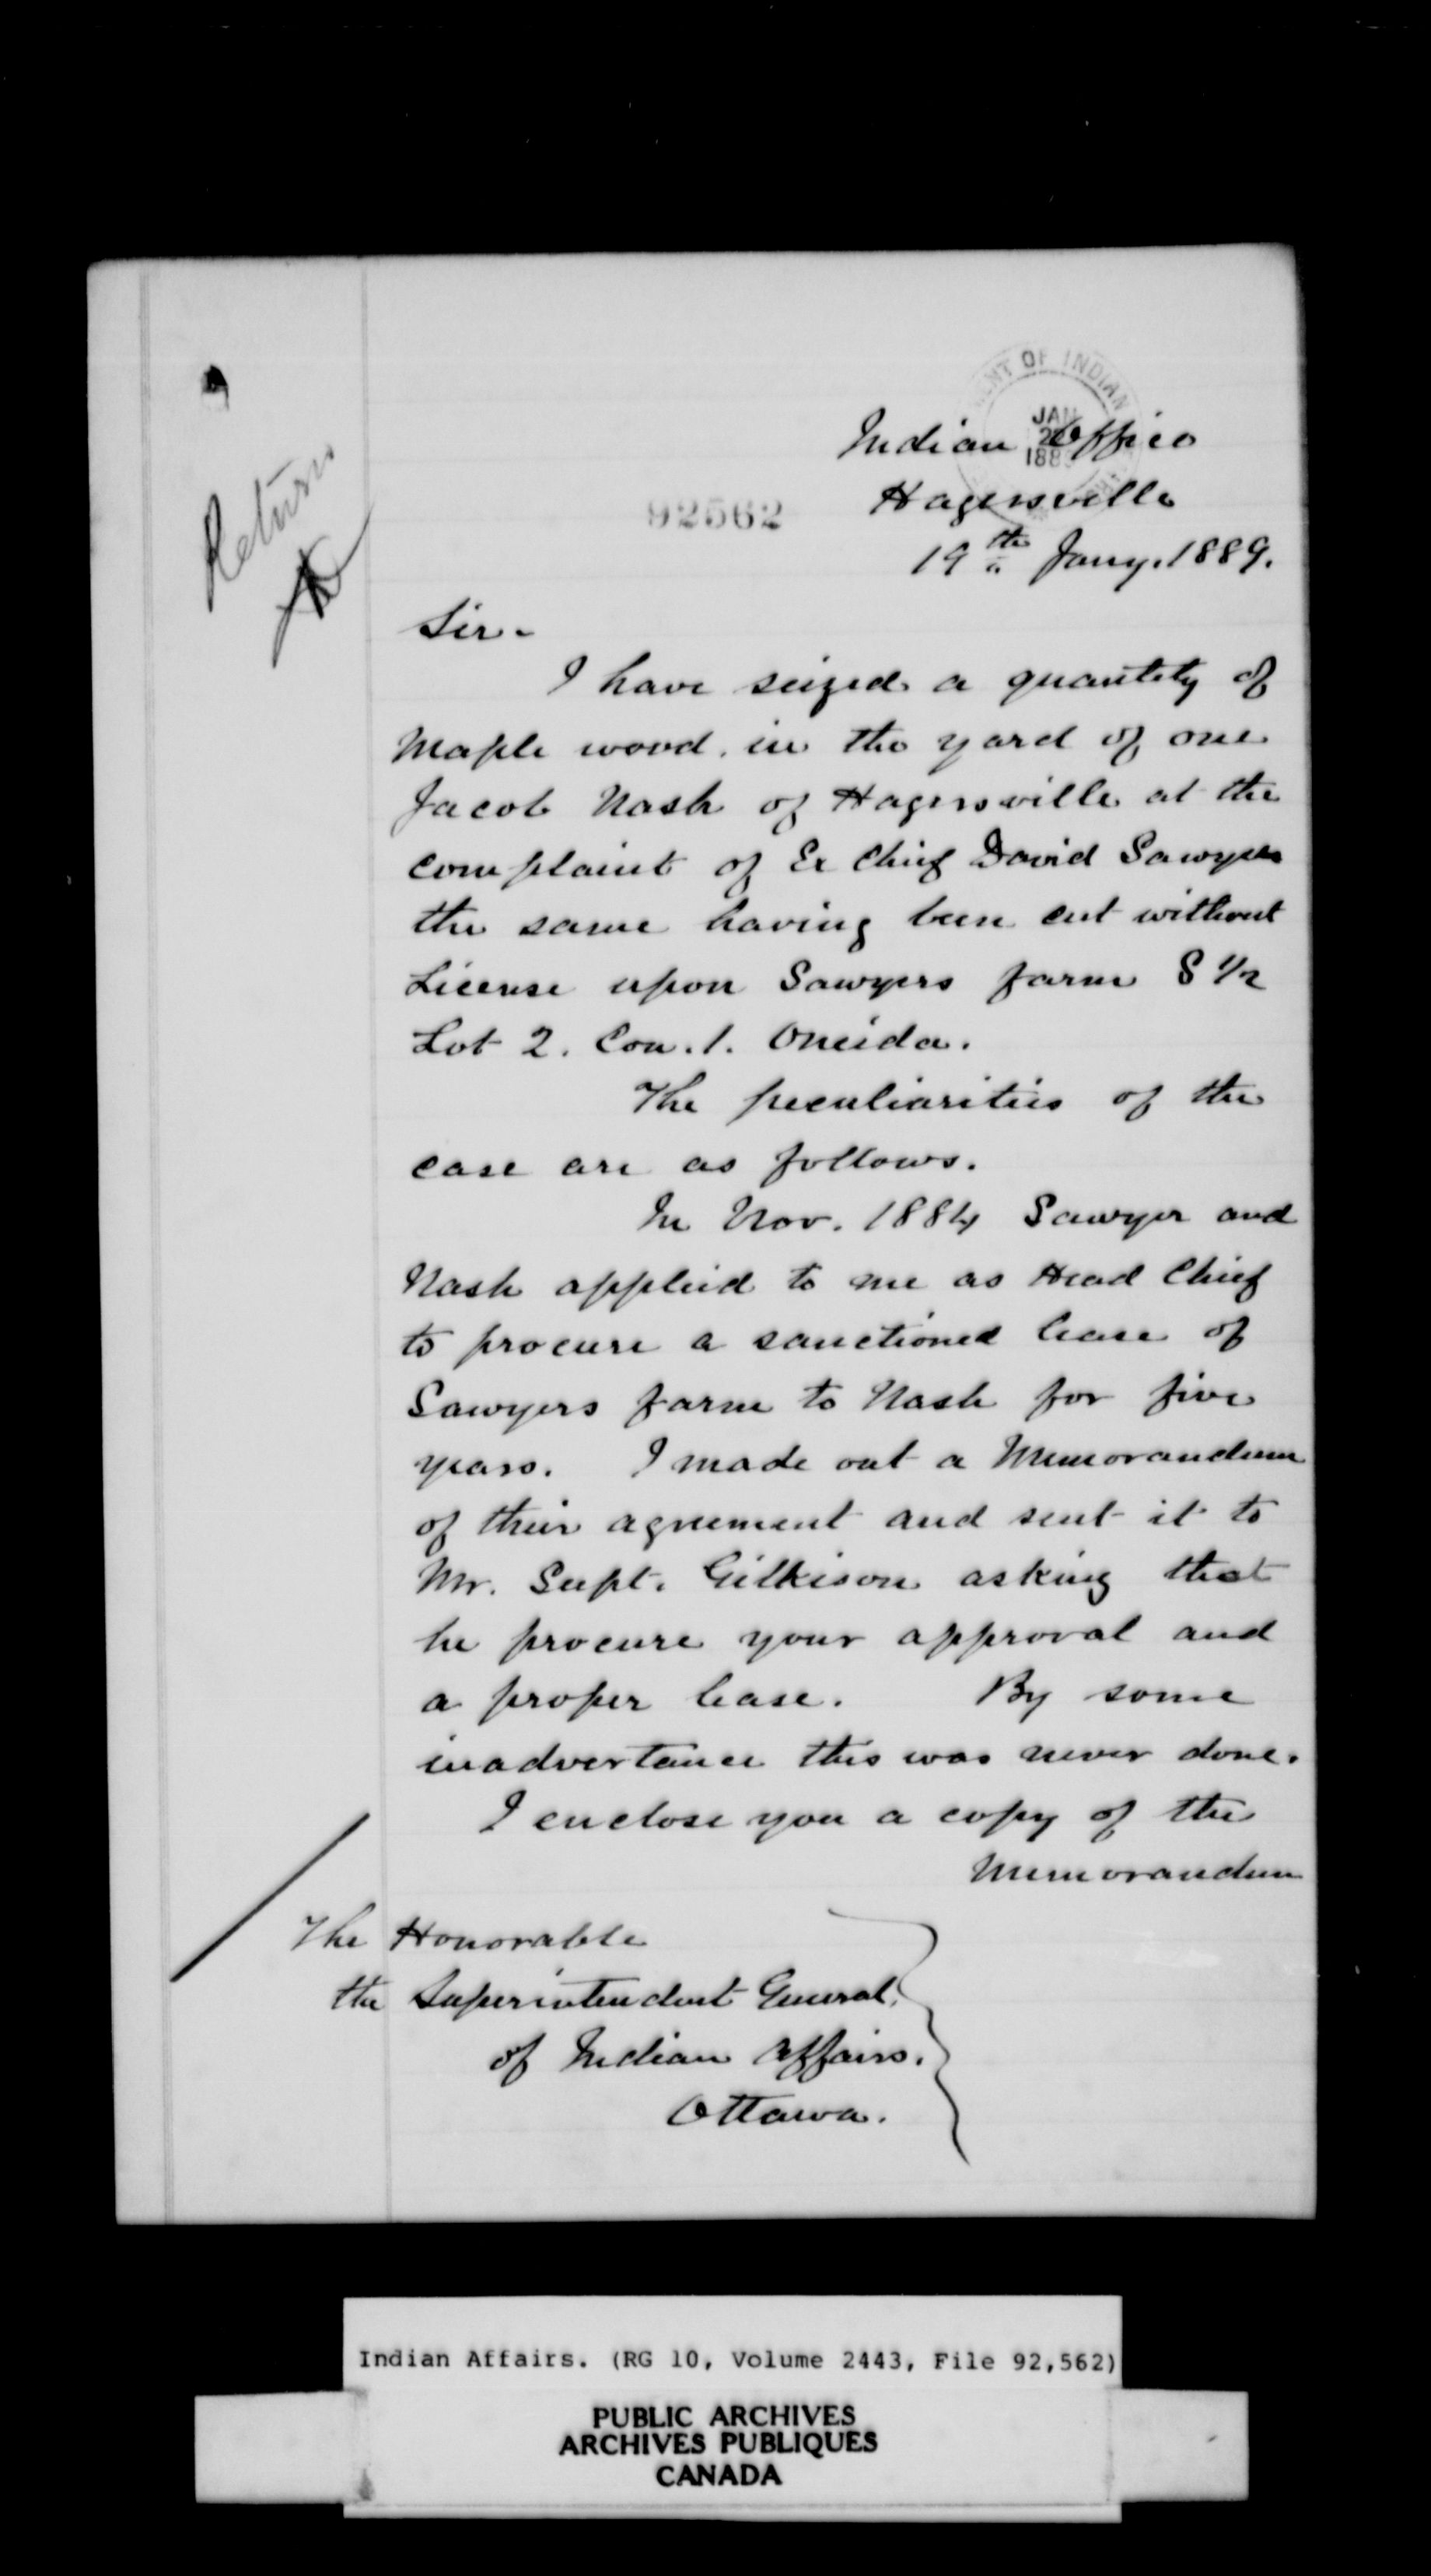 Return
DEPARTMENT OF INDIAN
JAN
188
Indian Office
92562
Hagersville
19th Jany. 1889.
Sir.
I have seized a quantity of
Maple wood in the yard of one
Jacob Nash of Hagersville at the
complaint of Ex Chief David Sawyer
the same having been cut without
License upon Sawyers farm S 1/2
Lot 2. Con. 1. Oneida.
The peculiarities of the
case are as follows.
In Nov. 1884 Sawyer and
Nash applied to me as Head Chief
to procure a sanctioned lease of
Sawyers farm to Nash for five
years. I made out a Memorandum
of their agreement and sent it to
Mr. Supt. Gilkison asking that
he procure your approval and
a proper lease. By some
inadvertance this was never done.
I enclose you a copy of the
Memorandum
The Honorable
the Superintendent General
of Indian Affairs.
Ottawa.
Indian Affairs. (RG 10, Volume 2443, File 92,562)
PUBLIC ARCHIVES
ARCHIVES PUBLIQUES
CANADA